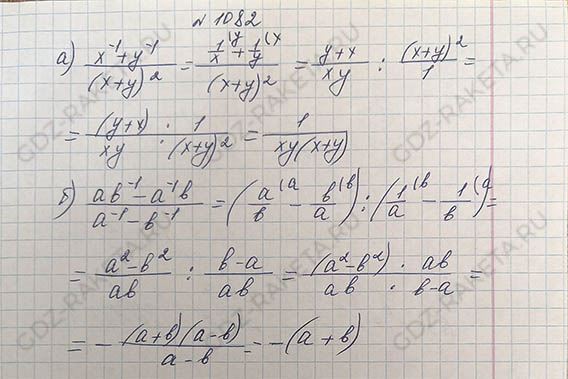 № 1082
а) (x⁻¹ + y⁻¹)/(x+y)² = (1/x^(y + 1/y^(x)/(x+y)² = (y+x)/(xy) : (x+y)²/1 =
= (y+x)/(xy) · 1/(x+y)² = 1/(xy(x+y))
б) (ab⁻¹ − a⁻¹b)/(a⁻¹ − b⁻¹) = (a/b^(a − b/a^(b) : (1/a^(b − 1/b^(a) =
= (a² − b²)/(ab) : (b − a)/(ab) = (a² − b²)/(ab) · ab/(b − a) =
= − (a+b)(a−b)/(a−b) = −(a+b)
GDZ-RAKETA.RU